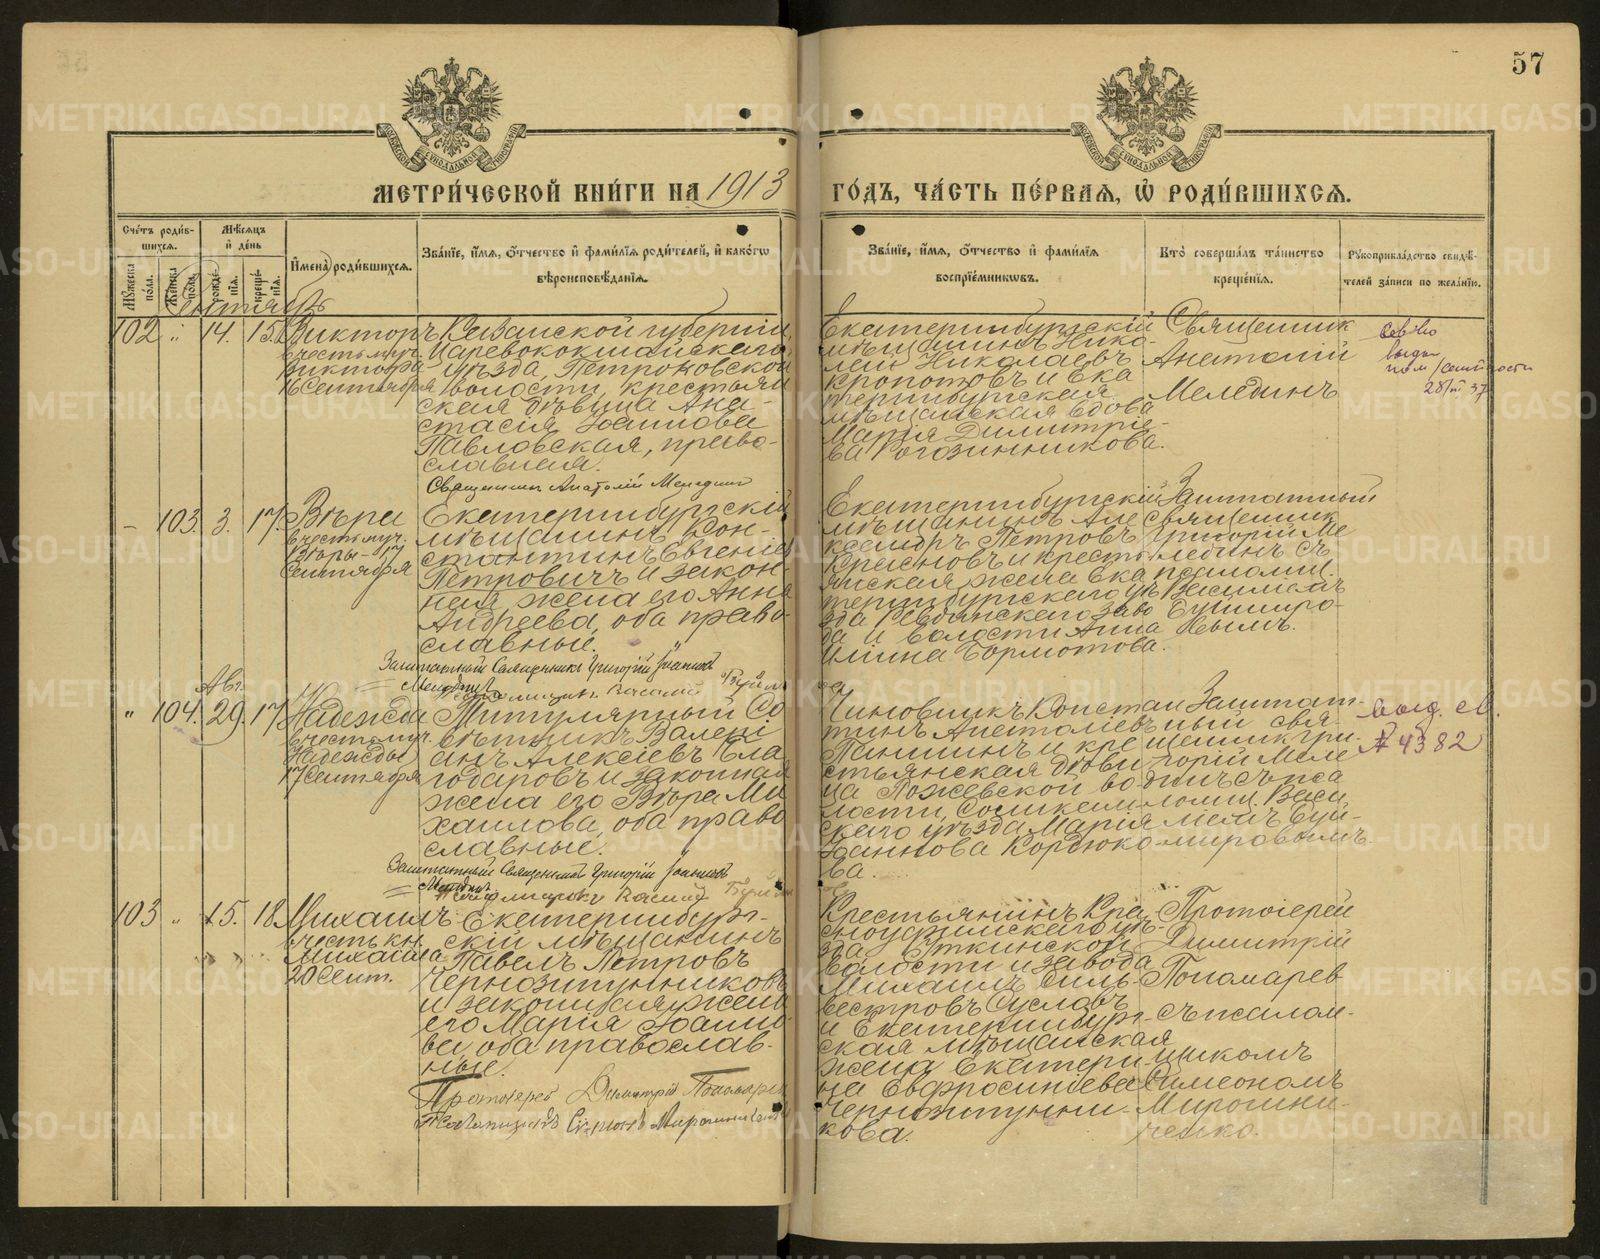 57
МЕТРИ́ЧЕСКОЙ КНИ́ГИ НА 1913 ГО́ДЪ, ЧА́СТЬ ПЕ́РВАѦ, Ѡ҆ РОДИ́ВШИХСѦ.
Счє́тъ роди́в-
шихсѧ.
Мꙋ́жєска по́ла.
Жє́нска по́ла.
Мѣ́сѧцъ
и҆ дє́нь
рождє́-нїѧ.
крєщє́-нїѧ.
И҆мєна̀ роди́вшихсѧ.
Зва́нїє, и҆́мѧ, ѻ҆́тчєство и҆ фами́лїѧ роди́тєлєй, и҆ како́гѡ
вѣроисповѣ́данїѧ.
Зва́нїє, и҆́мѧ, ѻ҆́тчєство и҆ фами́лїѧ
воспрїє́мникѡвъ.
Кто̀ совєрша́лъ та́инство
крєщє́нїѧ.
Рꙋкоприкла́дство свидѣ́-
тєлєй за́писи по жєла́нїю.
Сентябрь
102 " 14. 15.
Викторъ
въ честь муч.
Виктора
16 Сентября
Казанской губерніи,
Царевококшайскаго
уѣзда, Петроковской
волости, крестьян
ская дѣвица Ана-
стасія Іоаннова
Павловская, право-
славная.
Священникъ Анатолій Мелединъ
Екатеринбургскій
мѣщанинъ Нико-
лай Николаевъ
Кропотовъ и Ека
теринбургская
мѣщанская вдова
Марія Димитріе-
ва Рогозинникова.
Священник
Анатолій
Мелединъ
28/III 37
– 103. 3. 17.
Вѣра
въ честь муч.
Вѣры – 17
Сентября
Екатеринбургскій
мѣщанинъ Кон-
стантинъ Евгеніев
Петровичъ и закон-
ная жена его Анна
Андреева, оба право-
славные.
Заштатный Священникъ Григорій Іоанновъ
Мелединъ
Екатеринбургскій
мѣщанинъ Але
ксандръ Петровъ
Красновъ и кресть
янская жена Ека
теринбургскаго уѣ
зда Ревдинскаго заво
да и волости Анна
Ильина Бормотова.
Заштатный
Священник
Григорій Ме
лединъ съ
псаломщ.
Василіемъ
Буймиро-
вымъ.
Авг.
" 104. 29. 17.
Надежда
въ честь муч.
Надежды
17 Сентября
Титулярный Со
вѣтникъ Валері
анъ Алексіевъ Бла
годаровъ и законная
жена его Вѣра Ми
хаилова, оба право
славные.
Заштатный Священникъ Григорій Іоанновъ
Мелединъ
Чиновникъ Констан
тинъ Анатоліевъ
Паншинъ и кре
стьянская дѣви
ца Пожевской во
лости, Соликам
скаго уѣзда Марія
Іоаннова Кордюко
ва.
Заштат-
ный свя-
щенник Гри-
горій Меле
динъ съ пса
ломщ. Васи
ліемъ Буй-
мировымъ.
выд. св.
№ 4382
103 " 15. 18.
Михаилъ
въ честь кн.
Михаила
20 Сент.
Екатеринбург-
скій мѣщанинъ
Павелъ Петровъ
Чернозипунниковъ
и законная жена
его Марія Іоанно
ва, оба православ-
ные.
Протоіерей Димитрій Пономаревъ
Крестьянинъ Кра
сноуфимскаго уѣ-
зда Уткинской
волости и завода
Михаилъ Силь-
вестровъ Сусловъ
и Екатеринбург-
ская мѣщанская
жена Екатери-
на Евфросиніева
Чернозипунни-
кова.
Протоіерей
Димитрій
Пономарев
съ псалом-
щикомъ
Симеономъ
Мирошни-
ченко.
METRIKI.GASO-URAL.RU